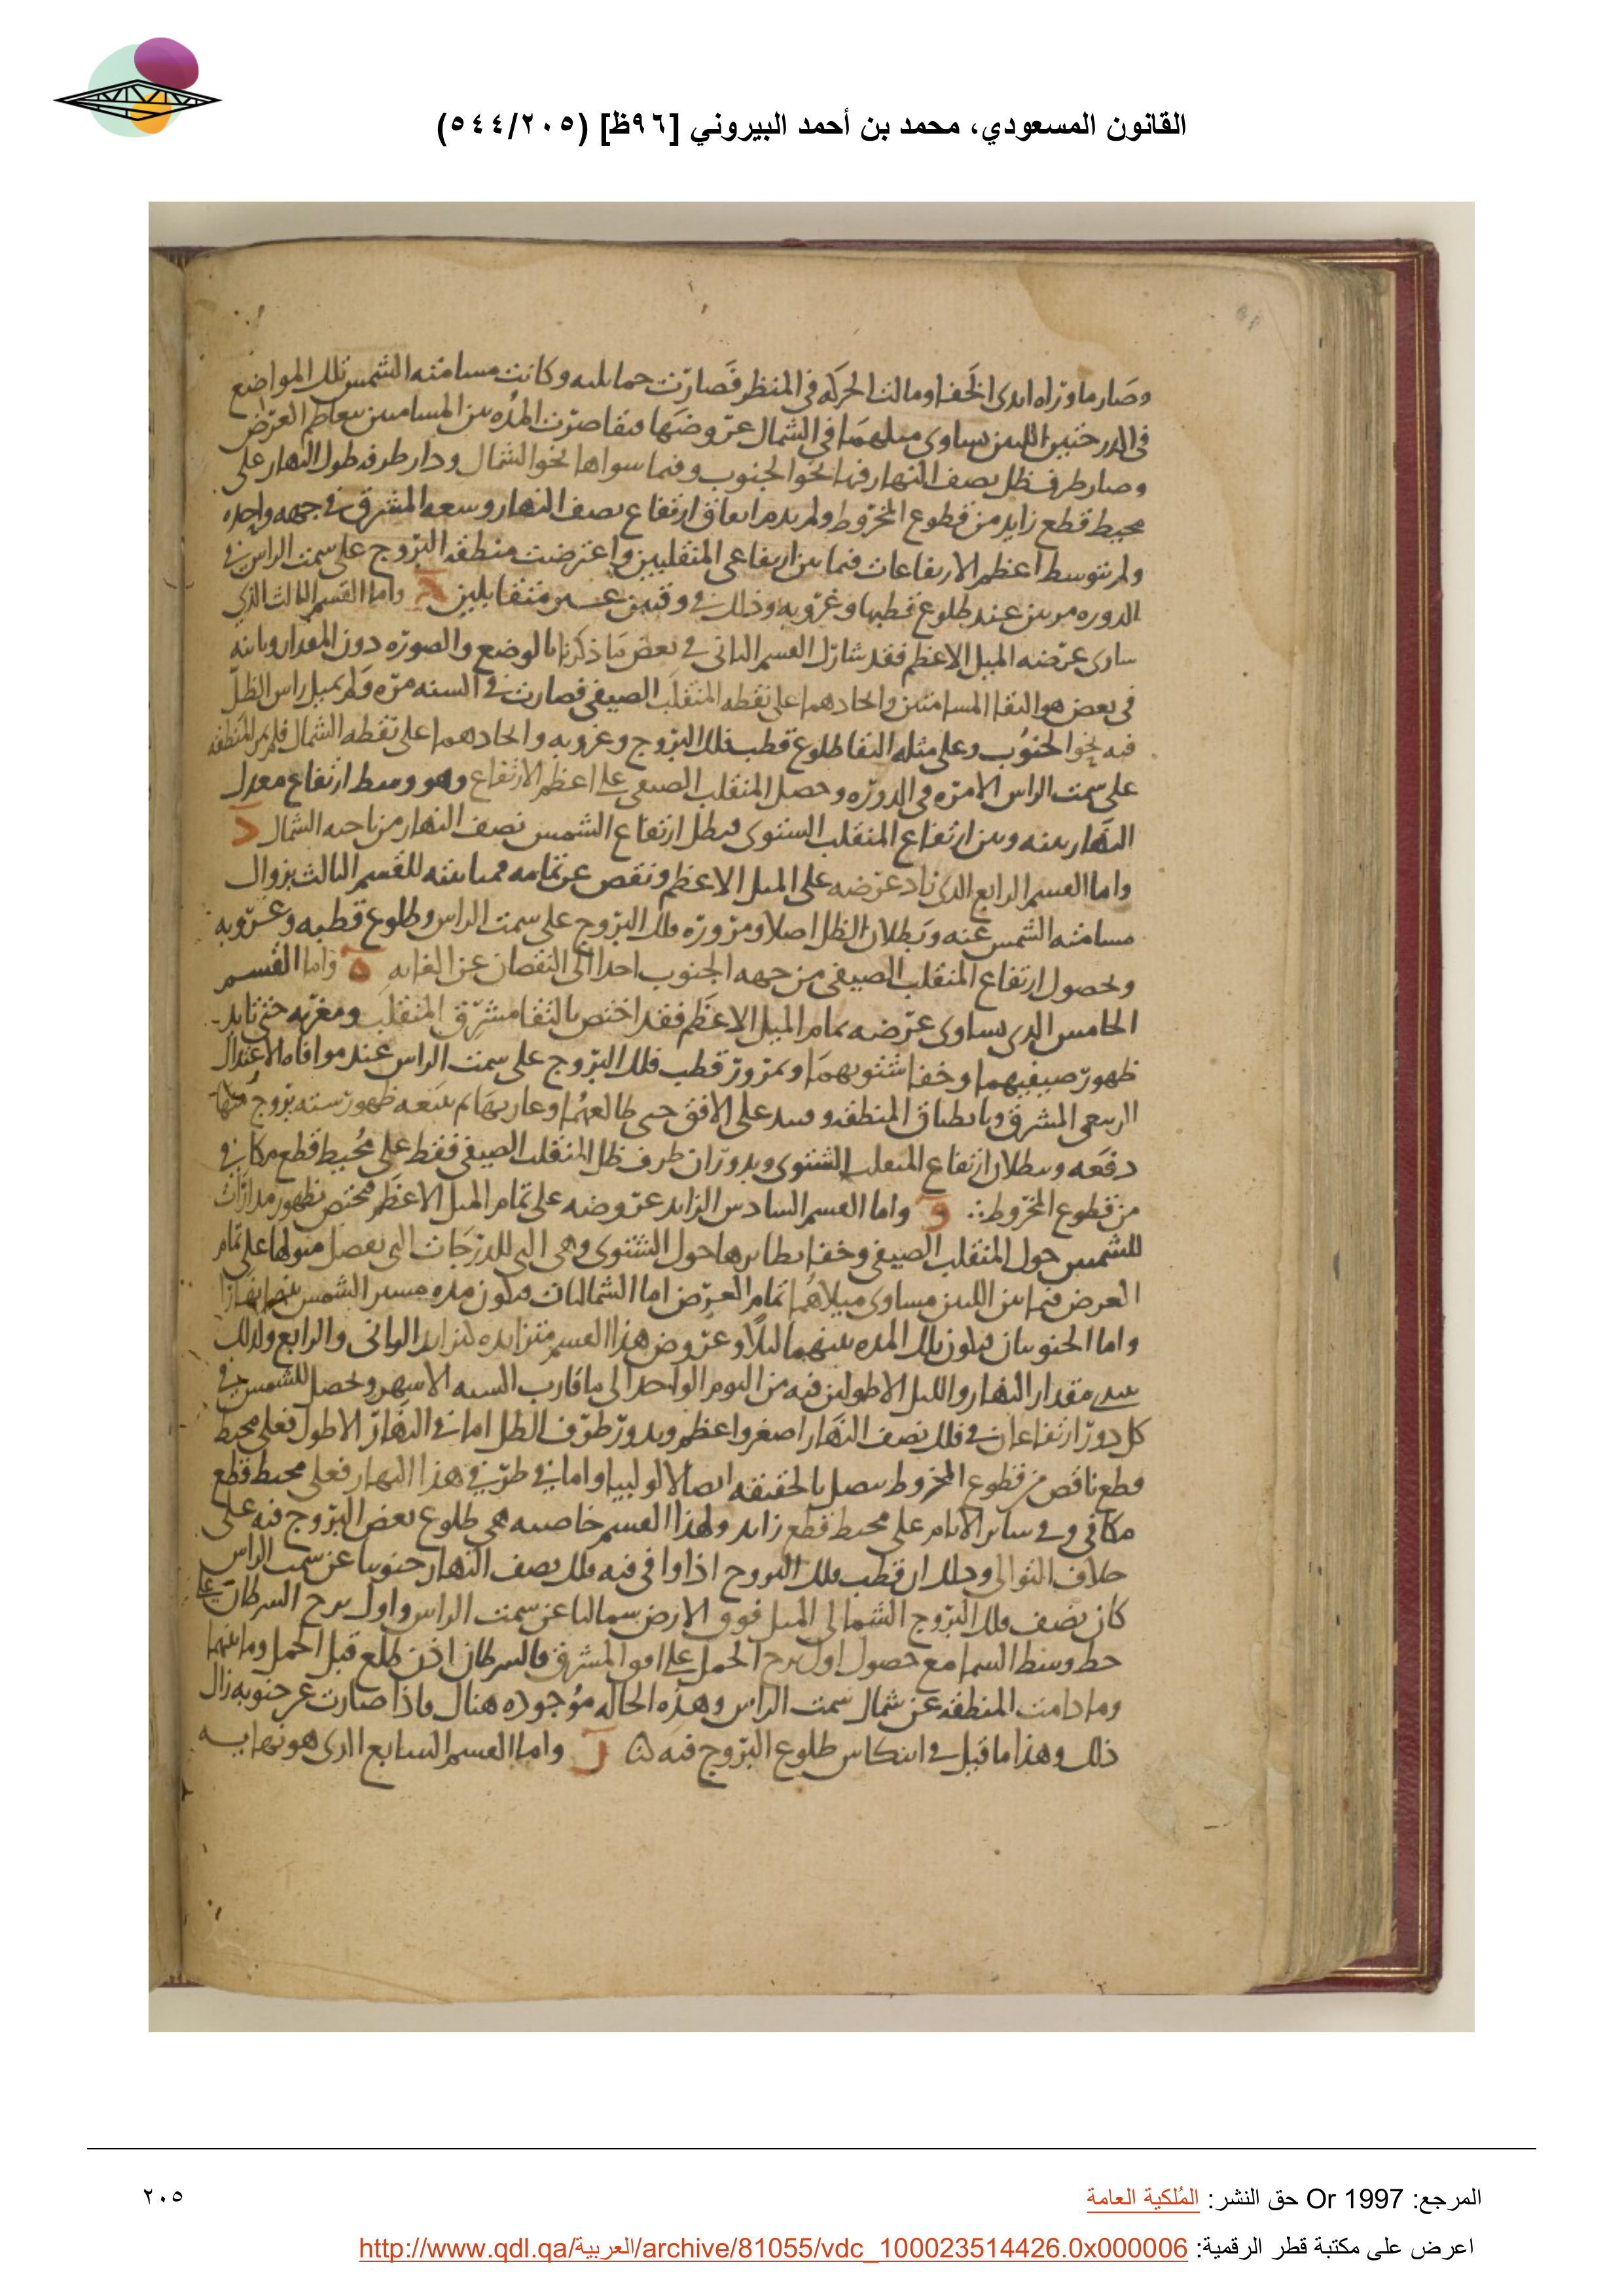 القانون المسعودي، محمد بن أحمد البيروني [٩٦ظ] (٥٤٤/٢٠٥)
وصار ما وراه ابدى الخفا ومالت الحركه في المنظر فصارت حمايليه وكانت مسامته الشمس تلك المواضع
في الدرجتين اللتين يساوى ميلهما في الشمال عروضها فتقاصرت المده بين المسامتتين بتعاظم العرض
وصار طرف ظل نصف النهار فيها نحو الجنوب وفيما سواها نحو الشمال ودار طرفه طول النهار على
محيط قطع زايد من قطوع المخروط ولم يدم اتفاق ارتفاع نصف النهار وسعه المشرق في جهه واحده
ولم يتوسط اعظم الارتفاعات فيما بين ارتفاعي المنقلبين واعترضت منطقه البروج على سمت الراس في
الدوره مرتين عند طلوع قطبها وغروبه وذلك في وقتين غير متقابلين ج واما القسم الثالث الذي
ساوى عرضه الميل الاعظم فقد شارك القسم الثاني في بعض ما ذكرنا بالوضع والصوره دون المقدار وباينه
في بعض هو التقا المسامتتين واتحادهما على نقطه المنقلب الصيفي فصارت في السنه مره ولم يميل راس الظل
فيه نحو الجنوب وعلى مثله التقا طلوع قطب فلك البروج وغروبه واتحادهما على نقطه الشمال فلم تمر المنطقه
على سمت الراس الا مره في الدوره وحصل المنقلب الصيفي على اعظم الارتفاع وهو وسط ارتفاع معدل
النهار بينه وبين ارتفاع المنقلب الشتوى فبطل ارتفاع الشمس نصف النهار من ناحيه الشمال د
واما القسم الرابع الذي زاد عرضه على الميل الاعظم ونقص عن تمامه فمباينته للقسم الثالث بزوال
مسامته الشمس عنه وبطلان الظل اصلا ومرور فلك البروج على سمت الراس وطلوع قطبه وغروبه
وبحصول ارتفاع المنقلب الصيفي من جهه الجنوب اخذا الى النقصان عن الغايه ه واما القسم
الخامس الذي يساوى عرضه تمام الميل الاعظم فقد اختص بالتقا مشرق المنقلب ومغربه حتى تابد
ظهور صيفيهما وخفا شتويهما وبمرور قطب فلك البروج على سمت الراس عند موافاه الاعتدال
الربيعي المشرق وبانطباق المنطقه على الافق حتى طالعهما وغاربهما ثم يتبعه ظهور سته بروج منها
دفعه وبطلان ارتفاع المنقلب الشتوى وبدوران طرف ظل المنقلب الصيفي فقط على محيط قطع مكافي
من قطوع المخروط و واما القسم السادس الزايد عروضه على تمام الميل الاعظم مختص بظهور مدارات
للشمس حول المنقلب الصيفي وخفا نظايرها حول الشتوى وهي التي للدرجات التي يفضل ميولها على تمام
العرض فيما بين اللتين يساوى ميلاهما تمام العرض اما الشماليتان فيكون مده مسير الشمس بينهما نهارا
واما الجنوبيتان فيكون تلك المده بينهما ليلا وعروض هذا القسم متزايده كتزايد الثاني والرابع ولذلك
مقدار النهار والليل الاطولين فيه من اليوم الواحد الى ما قارب السته الاشهر وحصل للشمس في
كل دور ارتفاعان في فلك نصف النهار اصغر واعظم ويدور طرف الظل اما في النهار الاطول فعلى محيط
قطع ناقص من قطوع المخروط يتصل بالحقيقه اتصالا لولبيا واما في طرفي هذا النهار فعلى محيط قطع
مكافي وفي ساير الايام على محيط قطع زايد ولهذا القسم خاصيه هي طلوع بعض البروج فيه على
خلاف التوالي وذلك ان قطب فلك البروج اذا وافي فيه فلك نصف النهار جنوبيا عن سمت الراس
كان نصف فلك البروج الشمالي الميل فوق الارض شماليا عن سمت الراس واول برج السرطان على
خط وسط السما مع حصول اول برج الحمل على افق المشرق فالسرطان اذن طلع قبل الحمل وما بينهما
وما دامت المنطقه عن شمال سمت الراس وهذه الحاله موجوده هناك فاذا صارت عن جنوبه زال
ذلك وهذا ما قيل في انتكاس طلوع البروج فيه ز واما القسم السابع الذي هو نهايه
المرجع: Or 1997 حق النشر: المُلكية العامة
٢٠٥
اعرض على مكتبة قطر الرقمية: http://www.qdl.qa/العربية/archive/81055/vdc_100023514426.0x000006